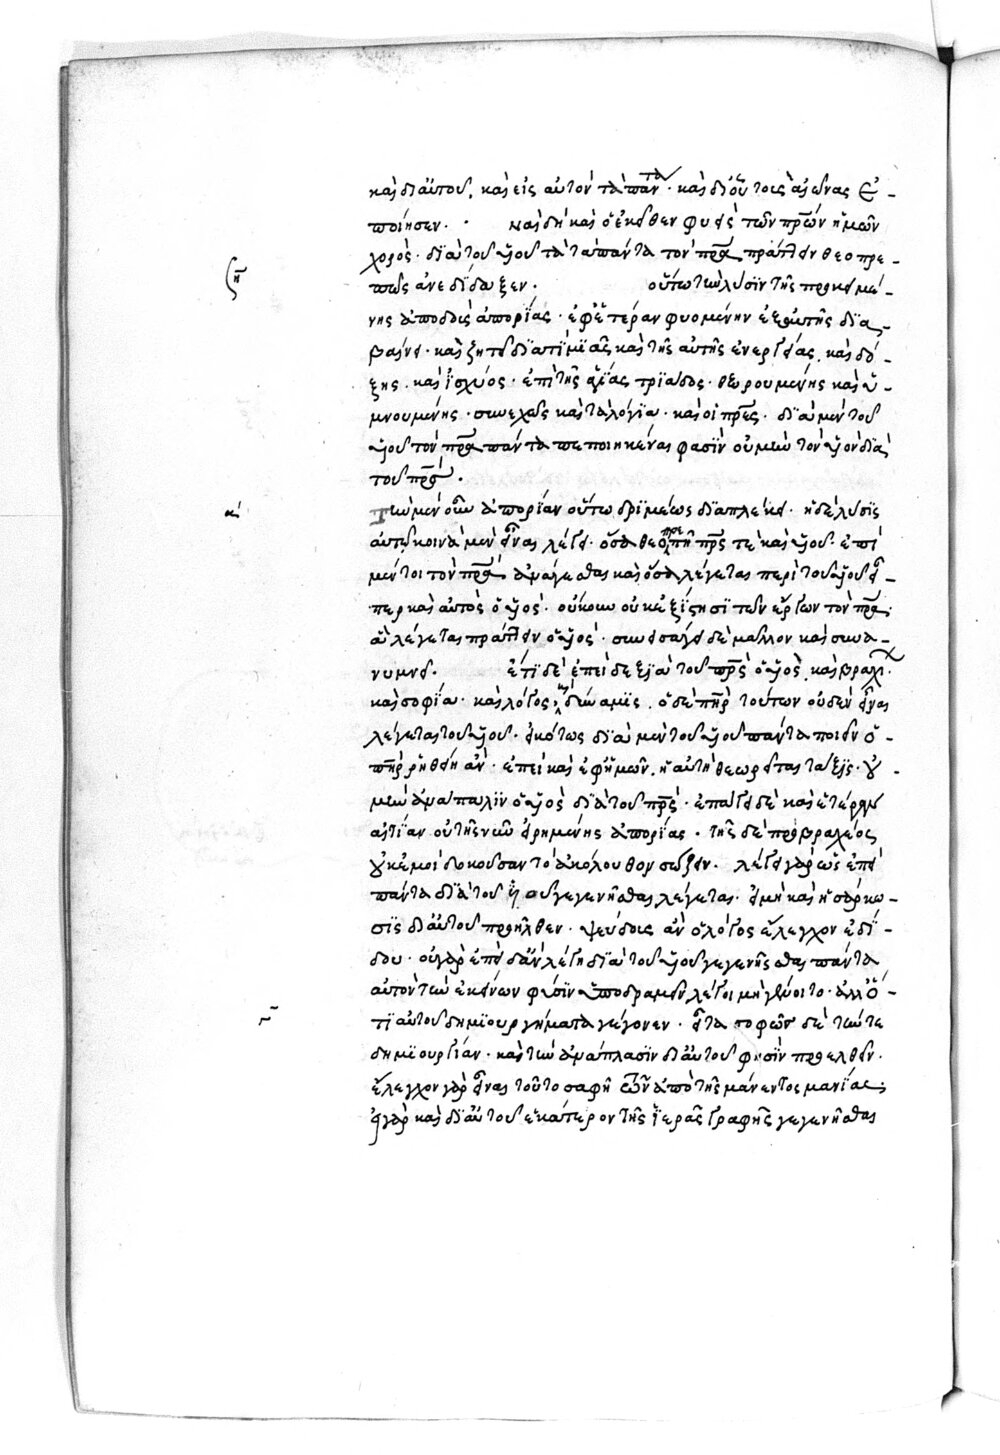 καὶ δι αὐτοῦ, καὶ εἰς αὐτὸν τὰ πάντα· καὶ δι οὗ τοὺς αἰῶνας ἐ-
ποίησεν. ναὶ δὴ καὶ ὁ ἐκεῖθεν φυεὶς τῶν πρων ἡμῶν
χορός· διὰ τοῦ υἱοῦ τὰ πάντα τὸν πρα πράττειν θεοπρε-
πῶς ἀνεδίδαξεν. οὕτω τὴν λύσιν τῆς προκειμέ-
νης ἀποδοὺς ἀπορίας· ἐφ ἑτέραν φυομένην ἐξ αὐτῆς δια-
βαίνει· καὶ ζητεῖ διατί μιᾶς καὶ τῆς αὐτῆς ἐνεργείας, καὶ δό-
ξης, καὶ ἰσχύος· ἐπὶ τῆς ἁγίας τριάδος· θεωρουμένης καὶ ὑ-
μνουμένης· συνεχῶς καὶ τὰ λόγια· καὶ οἱ πρες· διὰ μὲν τοῦ
υἱοῦ τὸν πρα πάντα πεποιηκέναι φασὶν οὐ μὴν τὸν υἱὸν διὰ
τοῦ πρς.
Τὴν μὲν οὖν ἀπορίαν οὕτω δριμέως διαπλέκει· ἡ δὲ λύσις
αὐτῷ κοινὰ μὲν εἶναι λέγει· ὅσα θεοπρεπῆ πρς τε καὶ υἱοῦ· ἐπὶ
μέντοι τὸν πρα ἀνάγεσθαι καὶ ὅσα λέγεται περὶ τοῦ υἱοῦ εἴ-
περ καὶ αὐτὸς ὁ υἱός· οὔκουν οὐκ ἐξίστησι τῶν ἔργων τὸν πρα
ἃ λέγεται πράττειν ὁ υἱός· συνεισάγει δὲ μᾶλλον καὶ συνα-
νυμνεῖ. ἔτι δὲ ἐπεὶ δεξιὰ τοῦ πρς ὁ υἱὸς, καὶ βραχί
καὶ σοφία· καὶ λόγος, καὶ δύναμις, ὁ δὲ πηρ τούτων οὐδὲν εἶναι
λέγεται τοῦ υἱοῦ· εἰκότως διὰ μὲν τοῦ υἱοῦ πάντα ποιεῖν ὁ
πηρ ῥηθείη ἄν· ἐπεὶ καὶ ἐφ ἡμῶν, ἡ αὐτὴ θεωρεῖται τάξις· οὐ
μὴν ἀνάπαλιν ὁ υἱὸς διὰ τοῦ πρς· ἐπάγει δὲ καὶ ἑτέραν
αἰτίαν οὐ τῆς νῦν εἰρημένης ἀπορίας· τῆς δὲ προβραχέος
οὐκ ἐμοὶ δοκοῦσαν τὸ ἀκόλουθον σώζειν. λέγει γὰρ ὡς ἐπεὶ
πάντα διὰ τοῦ υἱοῦ γεγενῆσθαι λέγεται· εἰ μὴ καὶ ἡ σάρκω-
σις δι αὐτοῦ προῆλθεν· ψεύδους ἂν ὁ λόγος ἔλεγχον ἐδί-
δου· οὐ γὰρ ἐπεὶ δὰν λέγῃ διὰ τοῦ υἱοῦ γεγενῆσθαι πάντα
αὐτὸν τὴν ἐκείνων φύσιν ὑποδραμεῖν λέγοι μὴ γένοιτο· ἀλλ ὅ-
τι αὐτοῦ δημιουργήματα γέγονεν· εἶτα σοφῶν δὲ τήν τε
δημιουργίαν· καὶ τὴν ἀνάπλασιν δι αὐτοῦ φησὶν προελθεῖν·
ἔλεγχον γὰρ εἶναι τοῦτο σαφῆ τῶν ἀπὸ τῆς μάνεντος μανίας
εἰ γὰρ καὶ δι αὐτοῦ ἑκάτερον τῆς ἱερᾶς γραφῆς γεγενῆσθαι